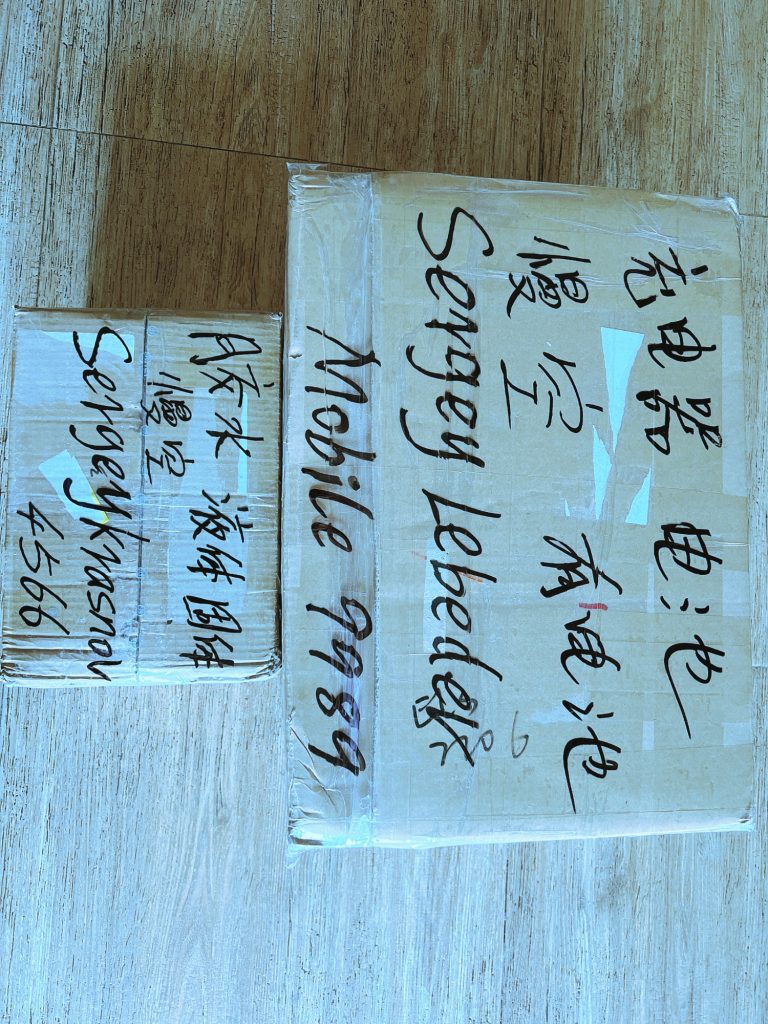 充电器 电池
慢空 有电池
Sergey Lebedev
Mobile 9989
胶水 液体 固体
慢空
Sergeykrasnov
4566